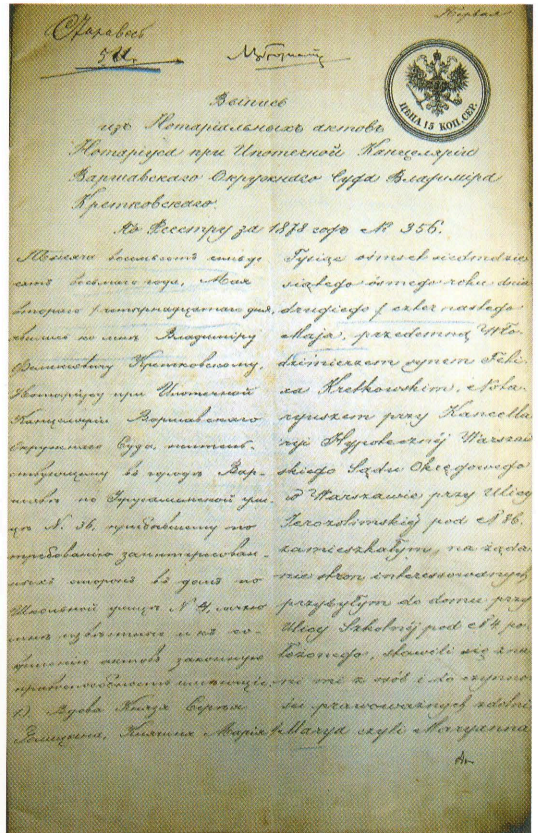 Первая
51.
ЦѢНА 15 КОП. СЕР.
Выпись
изъ Нотаріальныхъ актовъ
Нотаріуса при Ипотечной Канцеляріи
Варшавскаго Окружнаго Суда Владиміра
Кретковскаго.
По Реестру за 1878 годъ № 356.
Тысяча восемьсотъ семьде
сятъ восьмаго года, Мая
втораго / четырнадцатаго дня,
явились ко мнѣ Владиміру
Кретковскому,
Нотаріусу при Ипотечной
Канцеляріи Варшавскаго
Окружнаго Суда, житель-
ствующему въ городѣ Вар-
шавѣ по Іерусалимской ули-
цѣ №. 36, прибывшему по
требованію заинтересован-
ныхъ сторонъ въ домъ по
Школьной улицѣ № 4, лично
мнѣ извѣстные и къ со-
вершенію актовъ законную
правоспособность имѣющіе:
1.) Вдова Князя Сергѣя
Голицына, Княгиня Марія
Tysiąc ośmset siedmdzie
siątego ósmego roku dnia
drugiego / czternastego
Maja, przedemną Wło-
dzimierzem synem Feli
xa Kretkowskim, Nota
ryuszem przy Kancella
ryi Hypotecznéj Warszaw
skiego Sądu Okręgowego
w Warszawie przy Ulicy
Jerozolimskiéj pod № 36.
zamieszkałym, na żąda
nie stron interessowanych
przybyłym do domu przy
Ulicy Szkolnéj pod № 4 po
łożonego, stawili się zna
ni mi z osób i do czynno
ści prawoważnych zdolni
Marya czyli Maryanna